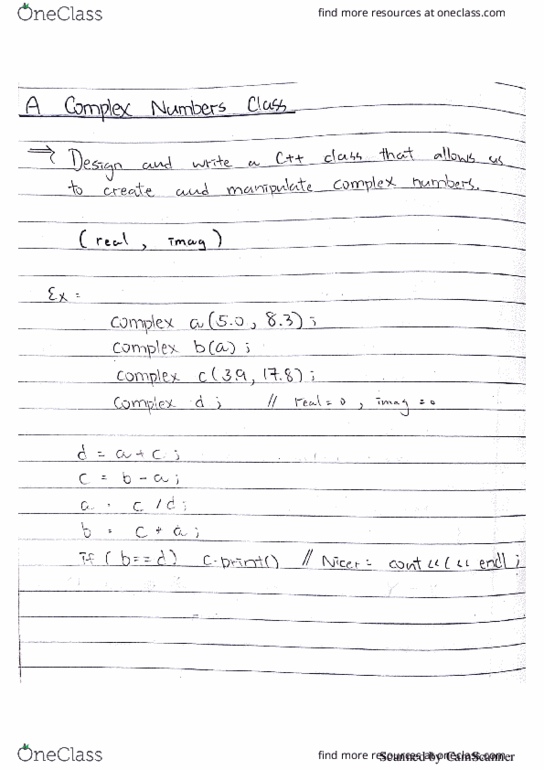 OneClass
find more resources at oneclass.com
A Complex Numbers Class
⇒ Design and write a C++ class that allows us
to create and manipulate complex numbers.
(real, imag)
Ex:
complex a(5.0, 8.3);
complex b(a);
complex c(3.9, 17.8);
complex d; // real=0, imag=0
d = a + c;
c = b - a;
a = c / d;
b = c + a;
if (b==d) c.print() // Nicer = cout << c << endl;
OneClass
find more resources at oneclass.com
Scanned by CamScanner